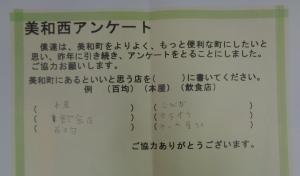 美和西アンケート
僕達は、美和町をよりよく、もっと便利な町にしたいと
思い、昨年に引き続き、アンケートをとることにしました。
ご協力お願いします。
美和町にあるといいと思う店を(　　　)に書いてください。
例　(百均)　(本屋)　(飲食店)
ご協力ありがとうございます。